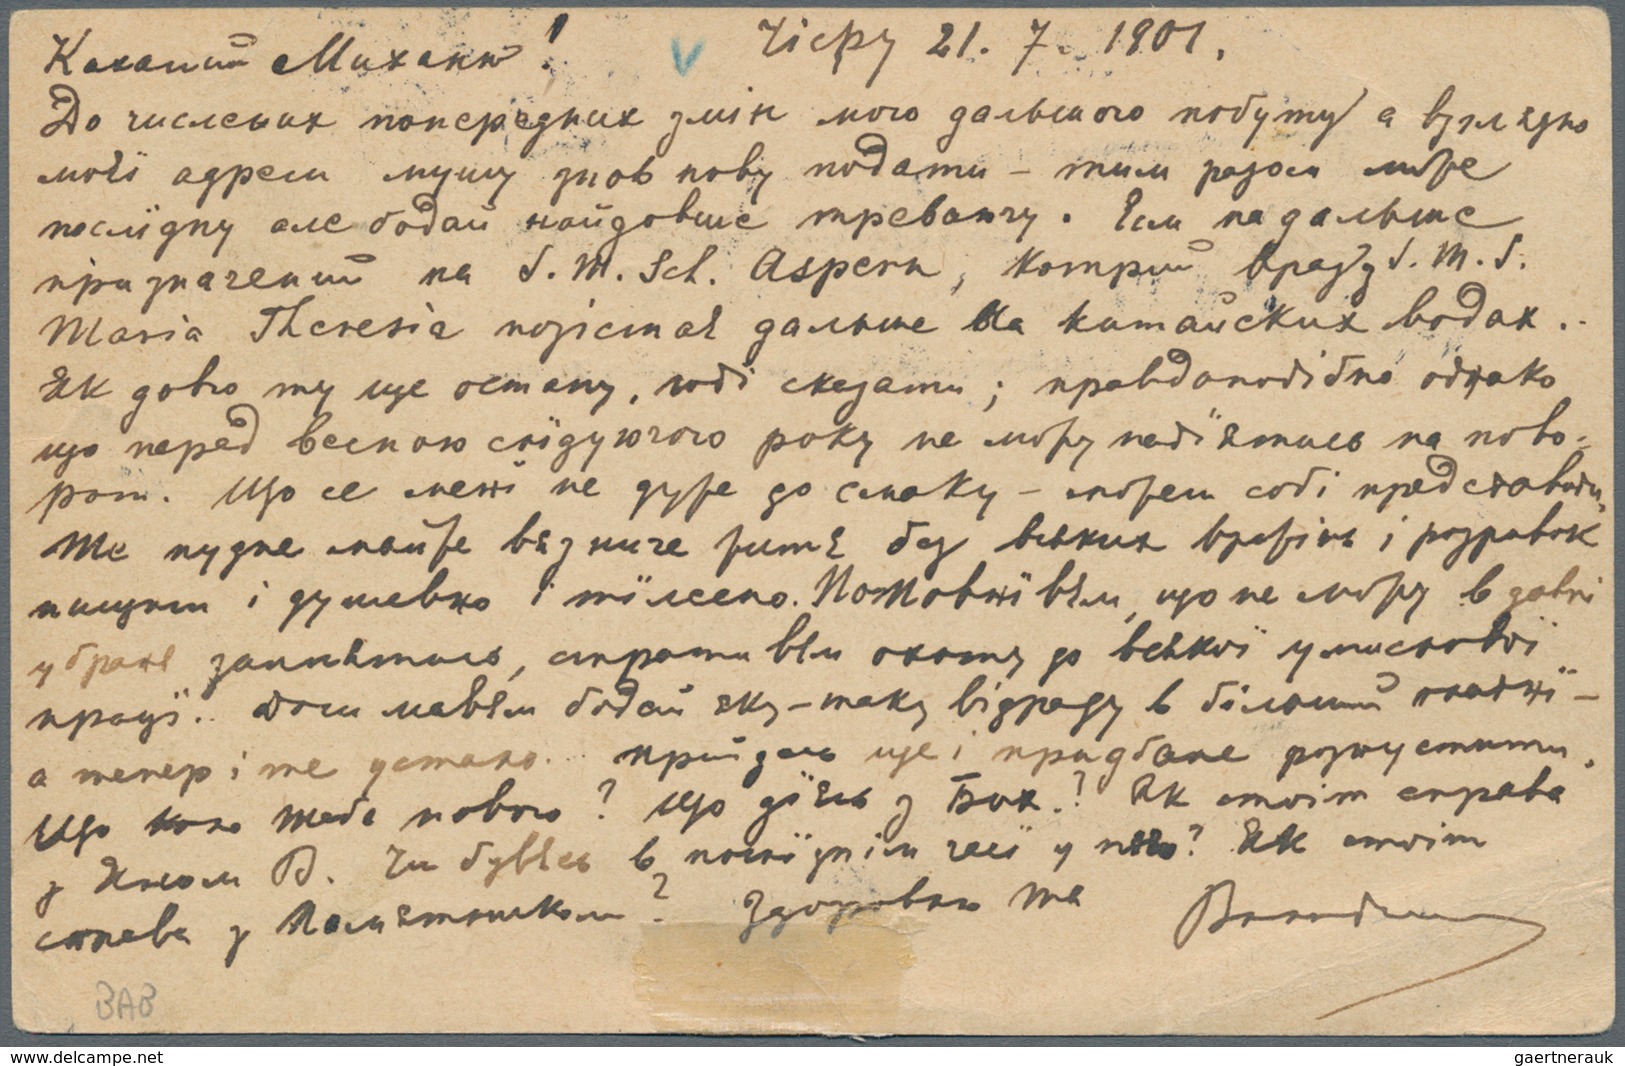 Коханий Михаське! Чіфу 21. 7. 1901.
До числених попередних змін мого дальшого побуту а взглядно
моєї адреси мушу знов нову подати – тим разом може
послїдну але бодай найдовше треваючу. Єсм на дальше
призначений на S. M. Sch. Aspern, котрий враз з S. M. S.
Maria Theresia позістає дальше на китайских водах..
Як довго ту ще остану, годі сказати; правдоподібно однако
що перед весною слїдуючого року не можу надїятись на пово-
рот. Що се менї не дуже до смаку – можеш собі представити,
Те нудне майже вязниче житє без всяких вражінь і розривок
нищит і душевно і тїлесно. Потовпївєм, що не можу в давні
убранє запнятись, стративєм охоту до всякої умислової
працї.. Доси мавєм бодай яку-таку відраду в більшій платнї –
а тепер і те устало... прийдесь ще і придбане розпустити.
Що коло тебе нового? Що дїєсь з Бох.? Як стоїт справа
з Яном В. Чи бувєсь в послїднім часї у него? Як стоїт
справа з Памятником? Здоровлю тя Володими
BAB
www.delcampe.net
gaertnerauk